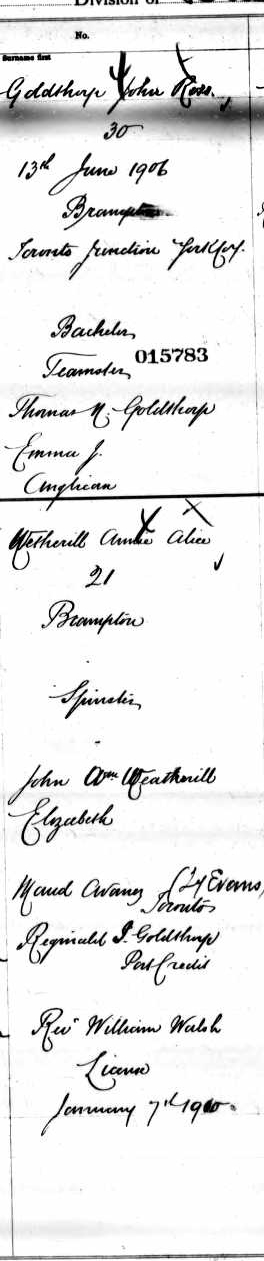 Division of
No.
Surname first
Goldthorp John Ross
30
13th June 1906
Brampton
Toronto Junction York Co.
Bachelor
015783
Teamster
Thomas N. Goldthorp
Emma J.
Anglican
Wetherill Annie Alice
21
Brampton
Spinster
John Wm Weatherill
Elizabeth
Maud
Toronto
Reginald J. Goldthorp
Port Credit
Rev William Walsh
License
January 7th